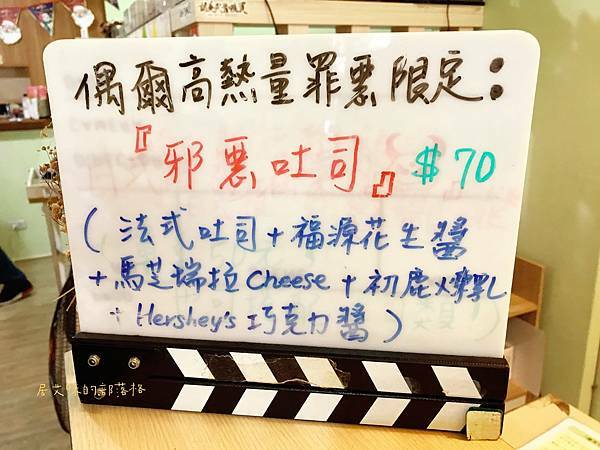 偶爾高熱量罪惡限定：
『邪惡吐司』$70
(法式吐司+福源花生醬
+馬芝瑞拉cheese+初鹿煉乳
+Hershey's 巧克力醬)
的部落格